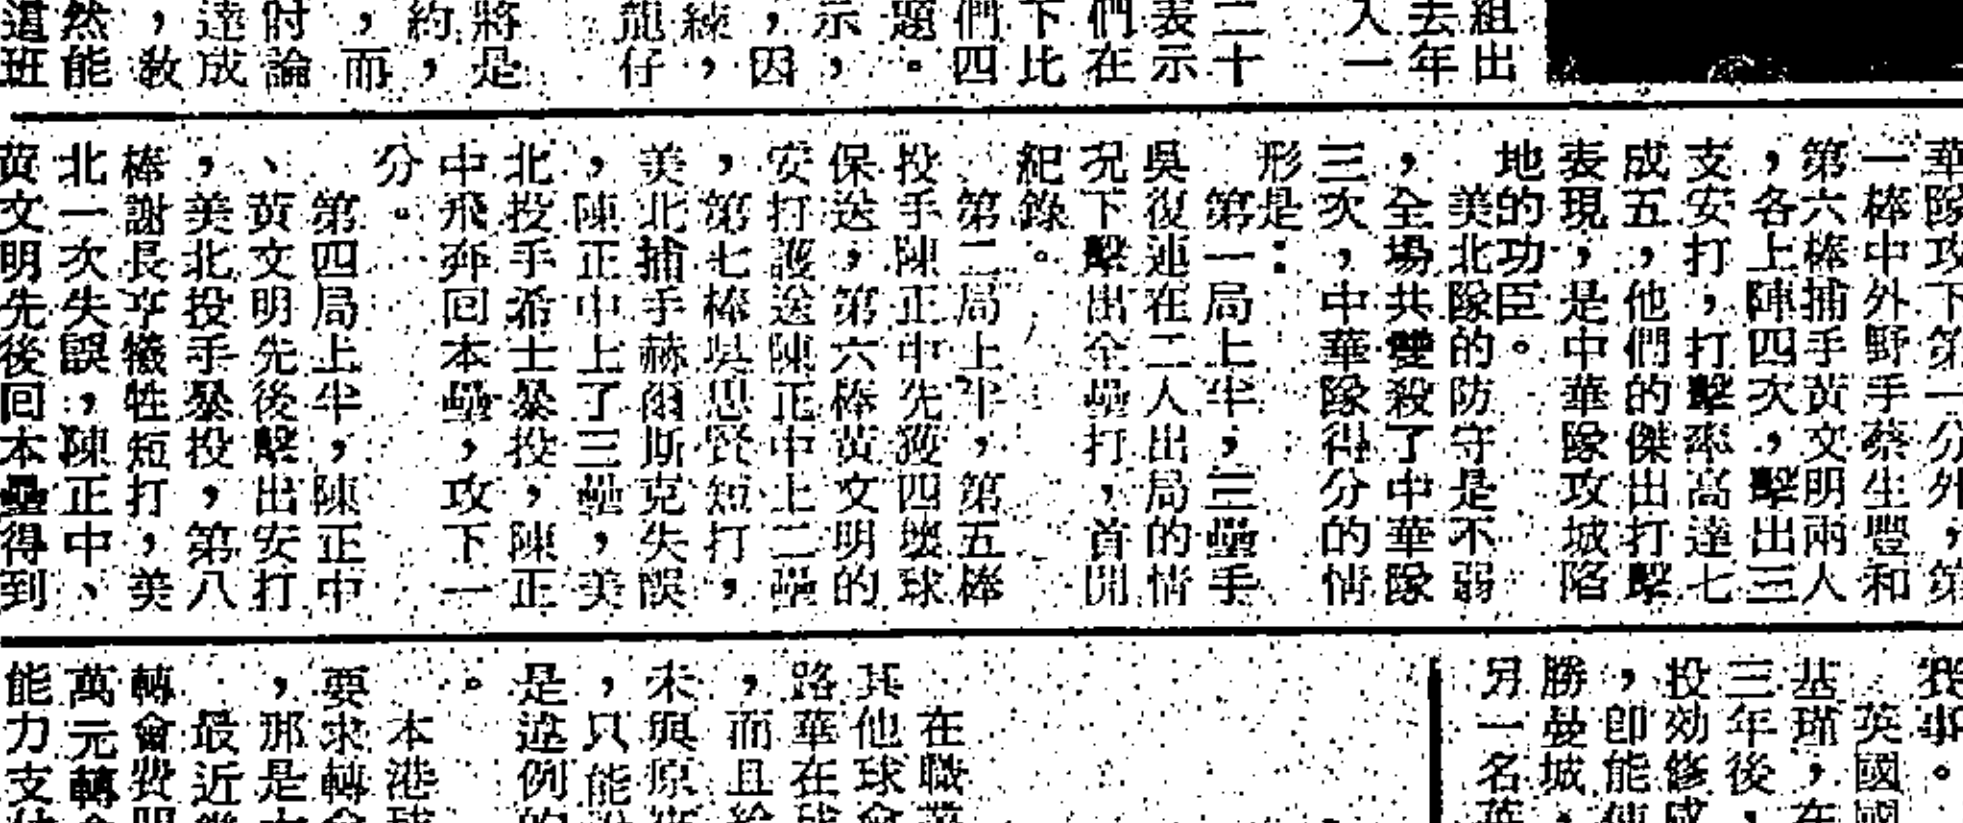 組出
去年
入一
二十
表示
們在
下比
們四
題。
示，
，因
練，
龍仔
將是
約，
，而
討論
達成
，教
然能
這班
華隊攻下第一分外，第
一棒中外野手蔡生豐和
第六棒捕手黃文明兩人
，各上陣四次，擊出三
支安打，打擊率高達七
成五，他們的傑出打擊
表現，是中華隊攻城陷
地的功臣。
美北隊的防守是不弱
，全場共雙殺了中華隊
三次，中華隊得分的情
形是：
第一局上半，三壘手
吳復連在二人出局的情
況下擊出全壘打，首開
紀錄。
第二局上半，第五棒
投手陳正中先獲四壞球
保送，第六棒黃文明的
安打護送陳正中上二壘
，第七棒吳思賢短打，
美北捕手赫爾斯克失誤
，陳正中上了三壘，美
北投手希士暴投，陳正
中飛奔回本壘，攻下一
分。
第四局上半，陳正中
、黃文明先後擊出安打
，美北投手暴投，第八
棒謝長亨犧牲短打，美
北一次失誤，陳正中、
黃文明先後回本壘得到
英國國
基瑾，在
三年後，
投効修成
，即能
勝曼城，
另一名英
在職業
其他球會
路華在
，而且給
未與原
，只能
是違例的
。
本港球
要求轉會
，那是
最近
轉會費
萬元轉會
能力支付